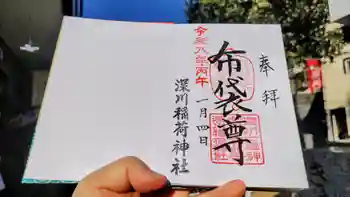 奉拝
布袋尊
令和八年丙午
一月四日
深川稲荷神社